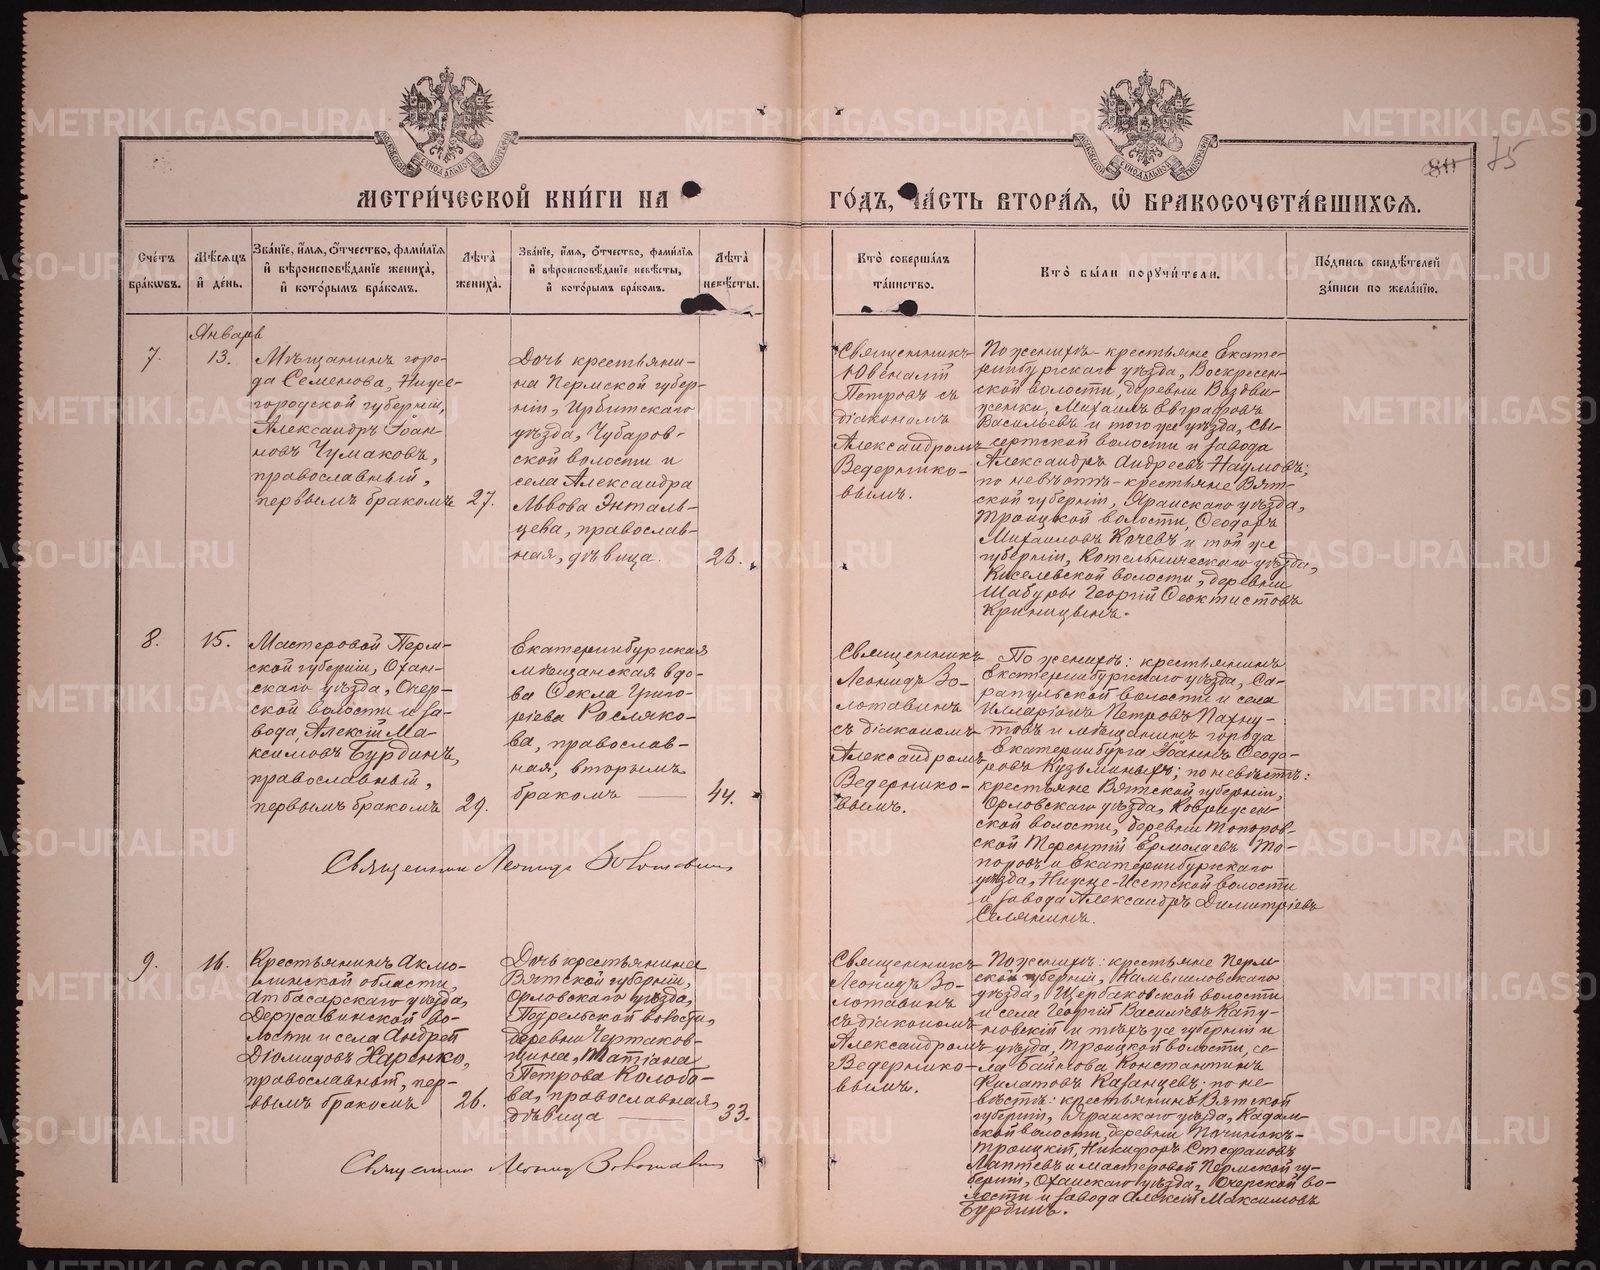 МЕТРИ́ЧЕСКОЙ КНИ́ГИ НА
ГО́ДЪ, ЧА́СТЬ ВТОРА́Я, Ѡ БРАКОСОЧЕТА́ВШИХСЯ.
80 75
Сче́тъ бра́кѡвъ.
Мѣ́сяцъ и҆ де́нь.
Зва́нїе, и҆́мя, ѻ҆́тчество, фами́лїя
и҆ вѣроисповѣ́данїе жениха̀,
и҆ кото́рымъ бра́комъ.
Лѣ́та жениха̀.
Зва́нїе, и҆́мя, ѻ҆́тчество, фами́лїя
и҆ вѣроисповѣ́данїе невѣ́сты,
и҆ кото́рымъ бра́комъ.
Лѣ́та невѣ́сты.
Кто̀ соверша́лъ
та́инство.
Кто̀ бы́ли поручи́тели.
По́дпись свидѣ́телей
за́писи по жела́нїю.
Январь
7.
13.
Мѣщанинъ горо-
да Семенова, Ниже-
городской губерніи,
Александръ Іоан-
новъ Чумаковъ,
православный,
первымъ бракомъ
27.
Дочь крестьяни-
на Пермской губер-
ніи, Ирбитскаго
уѣзда, Чубаров-
ской волости и
села Александра
Львова Энталь-
цева, православ-
ная, дѣвица.
26.
Священникъ
Ювеналій
Петровъ съ
діакономъ
Александромъ
Ведернико-
вымъ.
По женихѣ крестьяне Екате-
ринбургскаго уѣзда, Воскресен-
ской волости, деревни Воздви-
женки, Михаилъ Евграфовъ
Васильевъ и того же уѣзда, Сы-
сертской волости и завода
Александръ Андреевъ Наумовъ;
по невѣстѣ крестьяне Вят-
ской губерніи, Яранскаго уѣзда,
Троицкой волости, Ѳеодоръ
Михаиловъ Кочевъ и той же
губерніи, Котельническаго уѣзда,
Киселевской волости, деревни
Шабуры Георгій Ѳеоктистовъ
Криницынъ.
8.
15.
Мастеровой Перм-
ской губерніи, Охан-
скаго уѣзда, Очер-
ской волости и за-
вода, Алексій Ма-
ксимовъ Бурдинъ,
православный,
первымъ бракомъ
29.
Екатеринбургская
мѣщанская вдо-
ва Ѳекла Григо-
ріева Рослякo-
ва, православ-
ная, вторымъ
бракомъ
44.
Священникъ
Леонидъ Зо-
лотавинъ
съ діакономъ
Александромъ
Ведернико-
вымъ.
По женихѣ: крестьянинъ
Екатеринбургскаго уѣзда, Са-
рапульской волости и села
Илларіонъ Петровъ Пахну-
товъ и мѣщанинъ города
Екатеринбурга Іоаннъ Ѳеодо-
ровъ Кузьминыхъ; по невѣстѣ:
крестьяне Вятской губерніи,
Орловскаго уѣзда, Коврижен-
ской волости, деревни Топоров-
ской Терентій Ермолаевъ То-
поровъ и Екатеринбургскаго
уѣзда, Нижне-Исетской волости
и завода Александръ Димитріевъ
Селянинъ.
Священникъ Леонидъ Золотавинъ
9.
16.
Крестьянинъ Акмо-
линской области,
Атбасарскаго уѣзда,
Державинской во-
лости и села Андрей
Діомидовъ Харенко,
православный, пер-
вымъ бракомъ
26.
Дочь крестьянина
Вятской губерніи,
Орловскаго уѣзда,
Подрельской волости,
деревни Чертаков-
щина, Татіана
Петрова Колобо-
ва, православная,
дѣвица
33.
Священникъ
Леонидъ Зо-
лотавинъ
съ діакономъ
Александромъ
Ведернико-
вымъ.
По женихѣ: крестьяне Перм-
ской губерніи, Камышловскаго
уѣзда, Щербаковской волости
и села Георгій Василіевъ Капу-
новскій и тѣхъ же губерніи и
уѣзда, Троицкой волости, се-
ла Байнова Константинъ
Филатовъ Казанцевъ; по не-
вѣстѣ: крестьянинъ Вятской
губерніи, Яранскаго уѣзда, Кадам-
ской волости, деревни Починокъ-
Троицкій, Никифоръ Стефановъ
Лаптевъ и мастеровой Пермской гу-
берніи, Оханскаго уѣзда, Очерской во-
лости и завода Алексій Максимовъ
Бурдинъ.
Священникъ Леонидъ Золотавинъ
METRIKI.GASO-URAL.RU